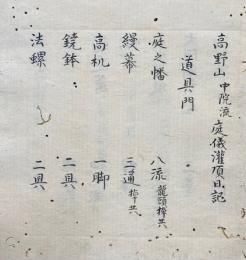 高野山中院流庭儀灌頂日記
道具門
庭之幡 八流 龍頭棹共
縵幕 三通 指竹共
高机 一脚
鐃鉢 二具
法螺 二具